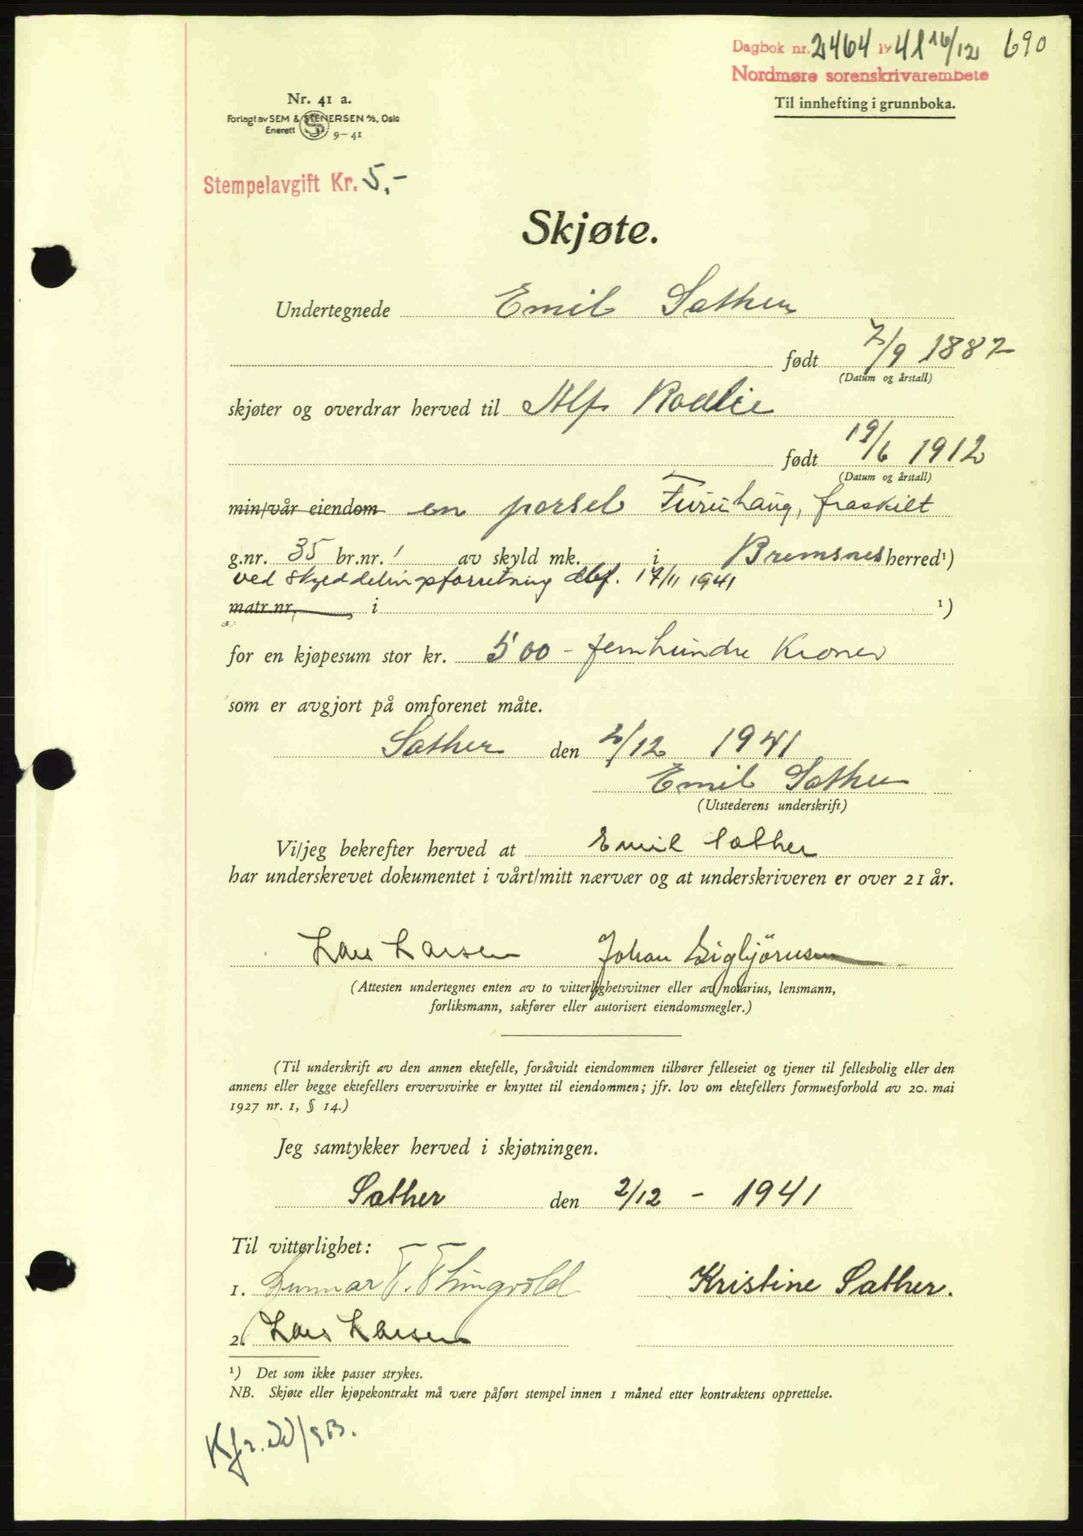 Dagbok nr. 2464 1941 16/12 690
Nordmøre sorenskrivarembete
Til innhefting i grunnboka.
Nr. 41 a.
Forlagt av SEM & STENERSEN A/S, Oslo
Enerett 9-41
Stempelavgift Kr. 5,-
Skjøte.
Undertegnede Emil Sather
født 7/9 1887
(Datum og årstall)
skjøter og overdrar herved til Alf Rodlie
født 19/6 1912
(Datum og årstall)
min/vår eiendom en parsel Furuhaug, fraskilt
g.nr. 35 br.nr. 1 av skyld mk. i Bremsnes herred¹)
ved skylddelingsforretning dbf. 17/11 1941
matr.nr. , i ¹)
for en kjøpesum stor kr. 500 - femhundre Kroner
som er avgjort på omforenet måte.
Sather den 2/12 1941
Emil Sather
(Utstederens underskrift)
Vi/jeg bekrefter herved at Emil Sather
har underskrevet dokumentet i vårt/mitt nærvær og at underskriveren er over 21 år.
Lars Larsen Johan Sigbjörnsen
(Attesten undertegnes enten av to vitterlighetsvitner eller av notarius, lensmann,
forliksmann, sakfører eller autorisert eiendomsmegler.)
(Til underskrift av den annen ektefelle, forsåvidt eiendommen tilhører felleseiet og tjener til fellesbolig eller den
annens eller begge ektefellers ervervsvirke er knyttet til eiendommen; jfr. lov om ektefellers formuesforhold av 20. mai
1927 nr. 1, § 14.)
Jeg samtykker herved i skjøtningen.
Sather den 2/12 - 1941
Til vitterlighet:
1. Gunnar T. Thingvold Kristine Sather.
2. Lars Larsen
¹) Det som ikke passer strykes.
NB. Skjøte eller kjøpekontrakt må være påført stempel innen 1 måned etter kontraktens opprettelse.